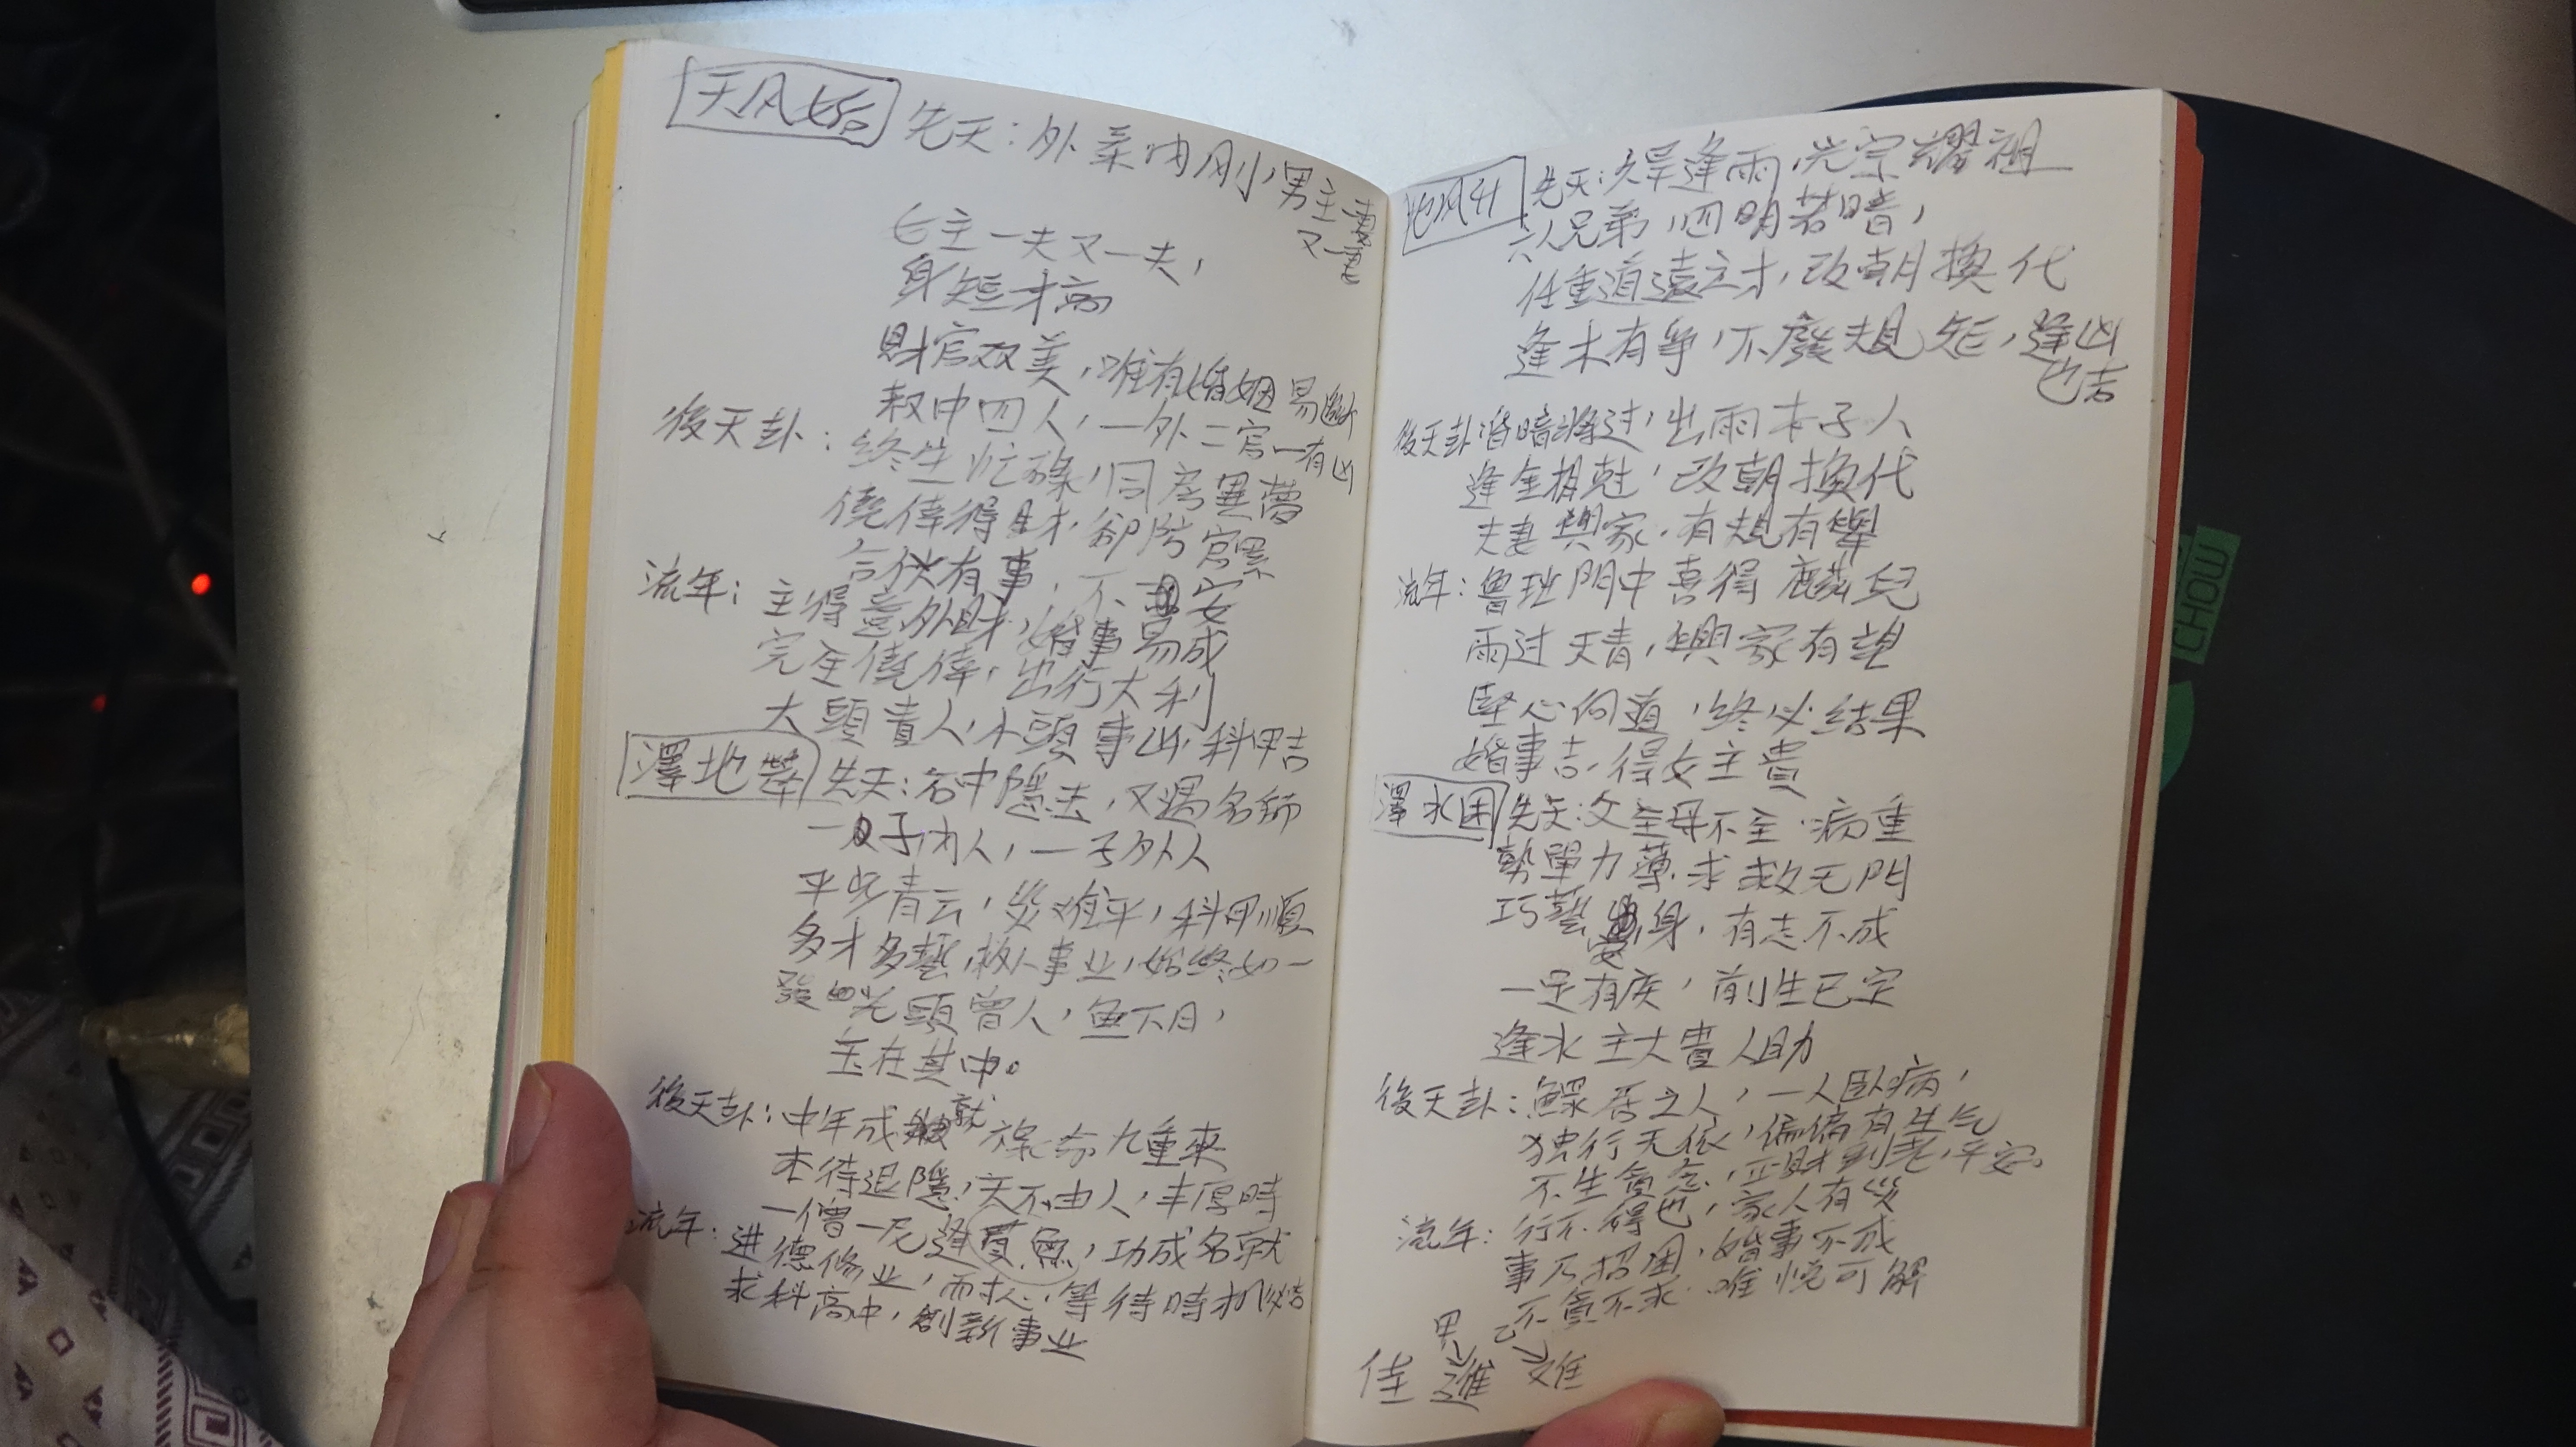 天風姤 先天：外柔内刚，男主妻
又一妻
女主一夫又一夫，
身短才高
財官双美，唯有婚姻易斷
叔中四人，一外二官一有凶
後天卦：終生忙碌，同房異夢
僥倖得財，卻防官累
合伙有事，不安
流年：主得意外財，婚事易成
完全僥倖，出行大利
大頭貴人，小頭事凶，科甲吉
澤地萃 先天：名中隱去，又遇名師
一子内人，一子外人
平步青云，災难平，科甲順
多才多藝，救人事业，始終如一
發四光頭曾人，魚不月，
玉在其中。
後天卦：中年成就 祿命九重來
本待退隱，天不由人，丰厚時
一僧一尼逢魚，功成名就
流年：进德修业，而求心，等待時机必吉
求科高中，創新事业
地风升 先天：久旱逢雨，光宗耀祖
六人兄弟，四明若暗，
任重道遠之才，改朝換代
逢木有爭，不廢規矩，逢凶
也吉
後天卦：昏暗將过，出雨本子人
逢金相尅，改朝換代
夫妻興家，有規有舉
流年：魯班門中喜得麟兒
雨过天青，興家有望
堅心向道，終必結果
婚事吉，得女主貴
澤水困 先天：父全母不全，病重
勢單力薄，求救无門
巧藝安身，有志不成
一定有疾，前生已定
逢水主大貴人助
後天卦：鰥居之人，一人臥病，
独行无依，偏偏有生气
不生貪念，正財到老，平安
流年：行不得也，家人有災
事不招困，婚事不成
不貪不求，唯悅可解
男 女
佳 進 难
CHOW